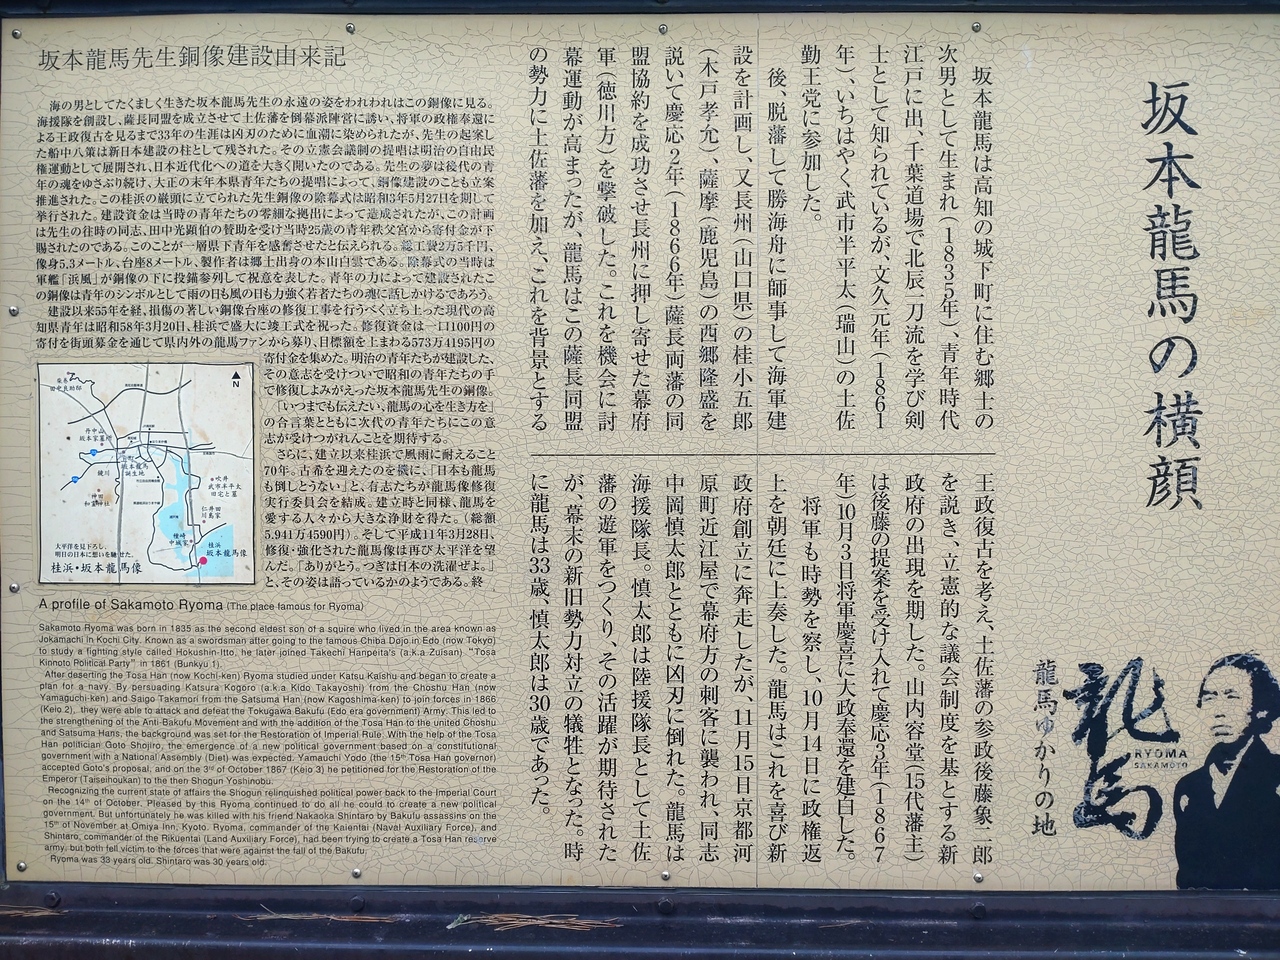 坂本龍馬の横顔
坂本龍馬は高知の城下町に住む郷士の
次男として生まれ(1835年)、青年時代
江戸に出、千葉道場で北辰一刀流を学び剣
士として知られているが、文久元年(1861
年)、いちはやく武市半平太(瑞山)の土佐
勤王党に参加した。
後、脱藩して勝海舟に師事して海軍建
設を計画し、又長州(山口県)の桂小五郎
(木戸孝允)、薩摩(鹿児島)の西郷隆盛を
説いて慶応2年(1866年)薩長両藩の同
盟協約を成功させ長州に押し寄せた幕府
軍(徳川方)を撃破した。これを機会に討
幕運動が高まったが、龍馬はこの薩長同盟
の勢力に土佐藩を加え、これを背景とする
王政復古を考え、土佐藩の参政後藤象二郎
を説き、立憲的な議会制度を基とする新
政府の出現を期した。山内容堂(15代藩主)
は後藤の提案を受け入れて慶応3年(1867
年)10月3日将軍慶喜に大政奉還を建白した。
将軍も時勢を察し、10月14日に政権返
上を朝廷に上奏した。龍馬はこれを喜び新
政府創立に奔走したが、11月15日京都河
原町近江屋で幕府方の刺客に襲われ、同志
中岡慎太郎とともに凶刃に倒れた。龍馬は
海援隊長。慎太郎は陸援隊長として土佐
藩の遊軍をつくり、その活躍が期待された
が、幕末の新旧勢力対立の犠牲となった。時
に龍馬は33歳、慎太郎は30歳であった。
龍馬
RYOMA
SAKAMOTO
龍馬ゆかりの地
坂本龍馬先生銅像建設由来記
海の男としてたくましく生きた坂本龍馬先生の永遠の姿をわれわれはこの銅像に見る。
海援隊を創設し、薩長同盟を成立させて土佐藩を倒幕派陣営に誘い、将軍の政権奉還に
よる王政復古を見るまで33年の生涯は凶刃のために血潮に染められたが、先生の起案し
た船中八策は新日本建設の柱として残された。その立憲会議制の提唱は明治の自由民
権運動として展開され、日本近代化への道を大きく開いたのである。先生の夢は後代の青
年の魂をゆさぶり続け、大正の末年本県青年たちの提唱によって、銅像建設のことも立案
推進された。この桂浜の巌頭に立てられた先生銅像の除幕式は昭和3年5月27日を期して
挙行された。建設資金は当時の青年たちの零細な拠出によって造成されたが、この計画
は先生の往時の同志、田中光顕伯の賛助を受け当時25歳の青年秩父宮から寄付金が下
賜されたのである。このことが一層県下青年を感奮させたと伝えられる。総工費2万5千円、
像身5,3メートル、台座8メートル、製作者は郷土出身の本山白雲である。除幕式の当時は
軍艦「浜風」が銅像の下に投錨参列して祝意を表した。青年の力によって建設されたこ
の銅像は青年のシンボルとして雨の日も風の日も力強く若者たちの魂に話しかけるであろう。
建設以来55年を経、損傷の著しい銅像台座の修復工事を行うべく立ち上った現代の高
知県青年は昭和58年3月20日、桂浜で盛大に竣工式を祝った。修復資金は一口100円の
寄付を街頭募金を通じて県内外の龍馬ファンから募り、目標額を上まわる573万4195円の
寄付金を集めた。明治の青年たちが建設した、
その意志を受けついで昭和の青年たちの手
で修復しよみがえった坂本龍馬先生の銅像。
「いつまでも伝えたい、龍馬の心を生き方を」
の合言葉とともに次代の青年たちにこの意
志が受けつがれんことを期待する。
さらに、建立以来桂浜で風雨に耐えること
70年。古希を迎えたのを機に、「日本も龍馬
も倒しとうない」と、有志たちが龍馬像修復
実行委員会を結成。建立時と同様、龍馬を
愛する人々から大きな浄財を得た。(総額
5.941万4590円)。そして平成11年3月28日、
修復・強化された龍馬像は再び太平洋を望
んだ。「ありがとう。つぎは日本の洗濯ぜよ。」
と、その姿は語っているかのようである。終
N
丹中山
坂本家墓所
坂本龍馬
誕生地
鏡川
神田
和霊神社
吹井
武市半平太
旧宅と墓
仁井田
川島家
種崎
中城家
桂浜
坂本龍馬像
太平洋を見下ろし、
明日の日本に想いを馳せた。
桂浜・坂本龍馬像
A profile of Sakamoto Ryoma (The place famous for Ryoma)
Sakamoto Ryoma was born in 1835 as the second eldest son of a squire who lived in the area known as
Jokamachi in Kochi City. Known as a swordsman after going to the famous Chiba Dojo in Edo (now Tokyo)
to study a fighting style called Hokushin-Itto, he later joined Takechi Hanpeita's (a.k.a Zuisan) "Tosa
Kinnoto Political Party" in 1861 (Bunkyu 1).
After deserting the Tosa Han (now Kochi-ken) Ryoma studied under Katsu Kaishu and began to create a
plan for a navy. By persuading Katsura Kogoro (a.k.a Kido Takayoshi) from the Choshu Han (now
Yamaguchi-ken) and Saigo Takamori from the Satsuma Han (now Kagoshima-ken) to join forces in 1866
(Keio 2), they were able to attack and defeat the Tokugawa Bakufu (Edo era government) Army. This led to
the strengthening of the Anti-Bakufu Movement and with the addition of the Tosa Han to the united Choshu
and Satsuma Hans, the background was set for the Restoration of Imperial Rule. With the help of the Tosa
Han politician Goto Shojiro, the emergence of a new political government based on a constitutional
government with a National Assembly (Diet) was expected. Yamauchi Yodo (the 15th Tosa Han governor)
accepted Goto's proposal, and on the 3rd of October 1867 (Keio 3) he petitioned for the Restoration of the
Emperor (Taiseihoukan) to the then Shogun Yoshinobu.
Recognizing the current state of affairs the Shogun relinquished political power back to the Imperial Court
on the 14th of October. Pleased by this Ryoma continued to do all he could to create a new political
government. But unfortunately he was killed with his friend Nakaoka Shintaro by Bakufu assassins on the
15th of November at Omiya Inn, Kyoto. Ryoma, commander of the Kaientai (Naval Auxiliary Force), and
Shintaro, commander of the Rikuentai (Land Auxiliary Force), had been trying to create a Tosa Han reserve
army, but both fell victim to the forces that were against the fall of the Bakufu.
Ryoma was 33 years old. Shintaro was 30 years old.